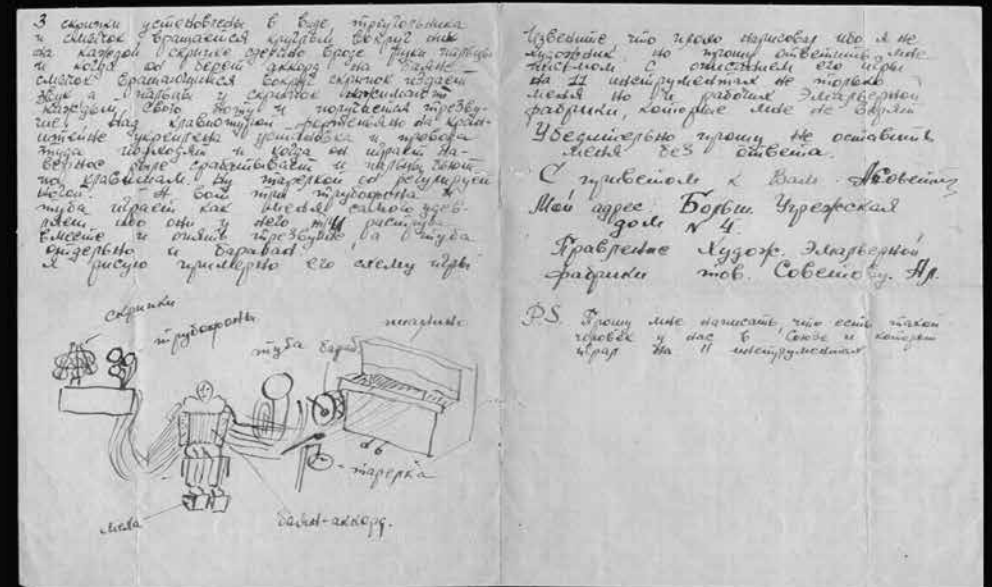 3 скрипки установлены в виде треугольника
и смычок вращается кругом вокруг них
на каждой скрипке сделано вроде пальцы
и когда он берет аккорд на баяне
смычок вращающийся вокруг скрипок издает
звук а пальцы и скрипок нажимают
каждый свою ноту и получается трезву-
чие. Над клавиатурой фортепьяно на крон-
штейне укреплена установка и провода
туда подходят и когда он играет на-
верное реле срабатывает и пальцы бьют
по клавишам. Ну тарелкой он регулирует
ногой. А вот три трубофона и
туба играет как меня самого удив-
ляет ибо они у него
вместе и опять трезвучие, а туба
отдельно и барабан.
Я рисую примерно его схему игры
скрипки
трубофоны
туба
бараб
пианино
тарелка
меха
баян-аккорд.
Извените что плохо нарисовал ибо я не
художник но прошу ответить мне
письмом с описанием его игры
на 11 инструментах не только
меня но и рабочих Эмальерной
фабрики, которые мне не верят
Убедительно прошу не оставить
меня без ответа.
С приветом к Вам АСоветов
Мой адрес Больш. Угрежская
дом № 4.
Правление Худож. Эмальерной
фабрики тов. Советову. Ал.
P.S. Прошу мне написать, что есть такой
человек у нас в Союзе и который
играл на 11 инструментах